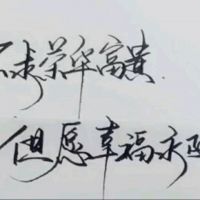 不求荣华富贵
但愿幸福永随